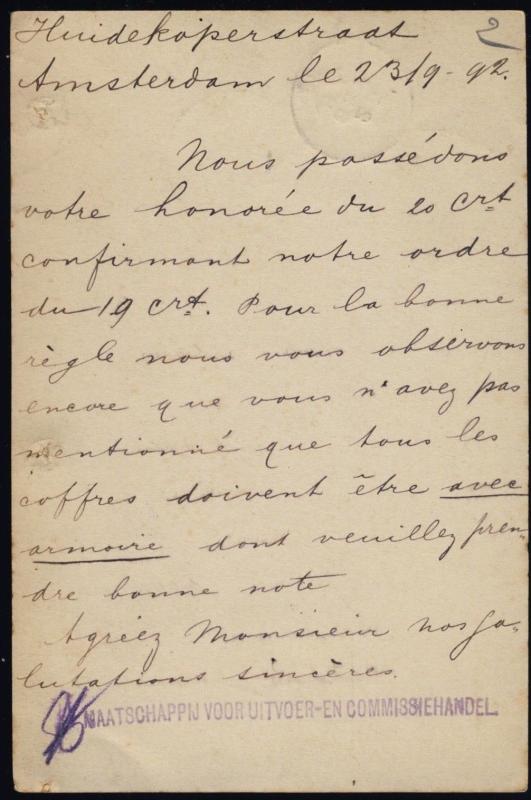 Huidekoperstraat
2
Amsterdam le 23/9-92.
Nous possédons
votre honorée du 20 Crt
confirmant notre ordre
du 19 Crt. Pour la bonne
règle nous vous observons
encore que vous n'avez pas
mentionné que tous les
coffres doivent être avec
armoire dont veuillez pren-
dre bonne note
Agréez Monsieur nos sa-
lutations sincères.
MAATSCHAPPIJ VOOR UITVOER-EN COMMISSIEHANDEL.